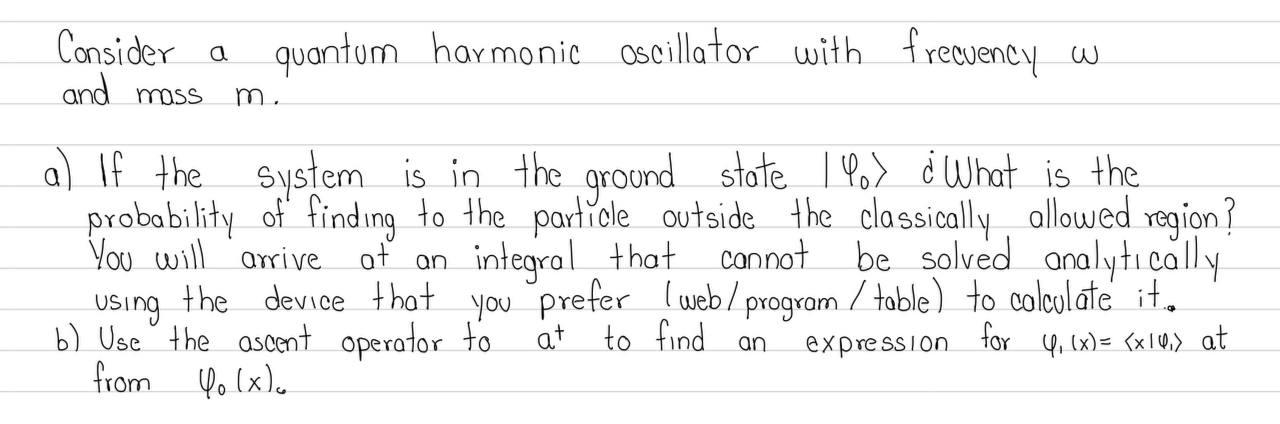 Consider a quantum harmonic oscillator with frecuency ω
and mass m.
a) If the system is in the ground state |φ₀⟩ ¿What is the
probability of finding to the particle outside the classically allowed region?
You will arrive at an integral that cannot be solved analytically
using the device that you prefer (web/program/table) to calculate it.
b) Use the ascent operator to a† to find an expression for φ₁(x)=⟨x|φ₁⟩ at
from φ₀(x).